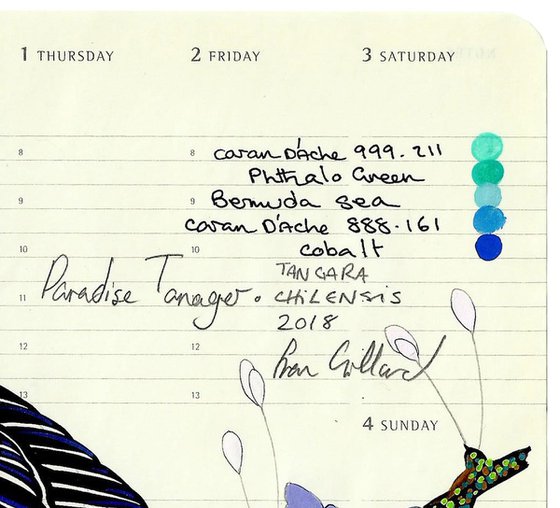 1 THURSDAY
2 FRIDAY
3 SATURDAY
8
8
caran D'Ache 999.211
Phthalo Green
9
9
Bermuda sea
caran D'Ache 888.161
10
10
cobalt
Paradise Tanager.
TANGARA
11
11
CHILENSIS
2018
12
12
13
13
4 SUNDAY